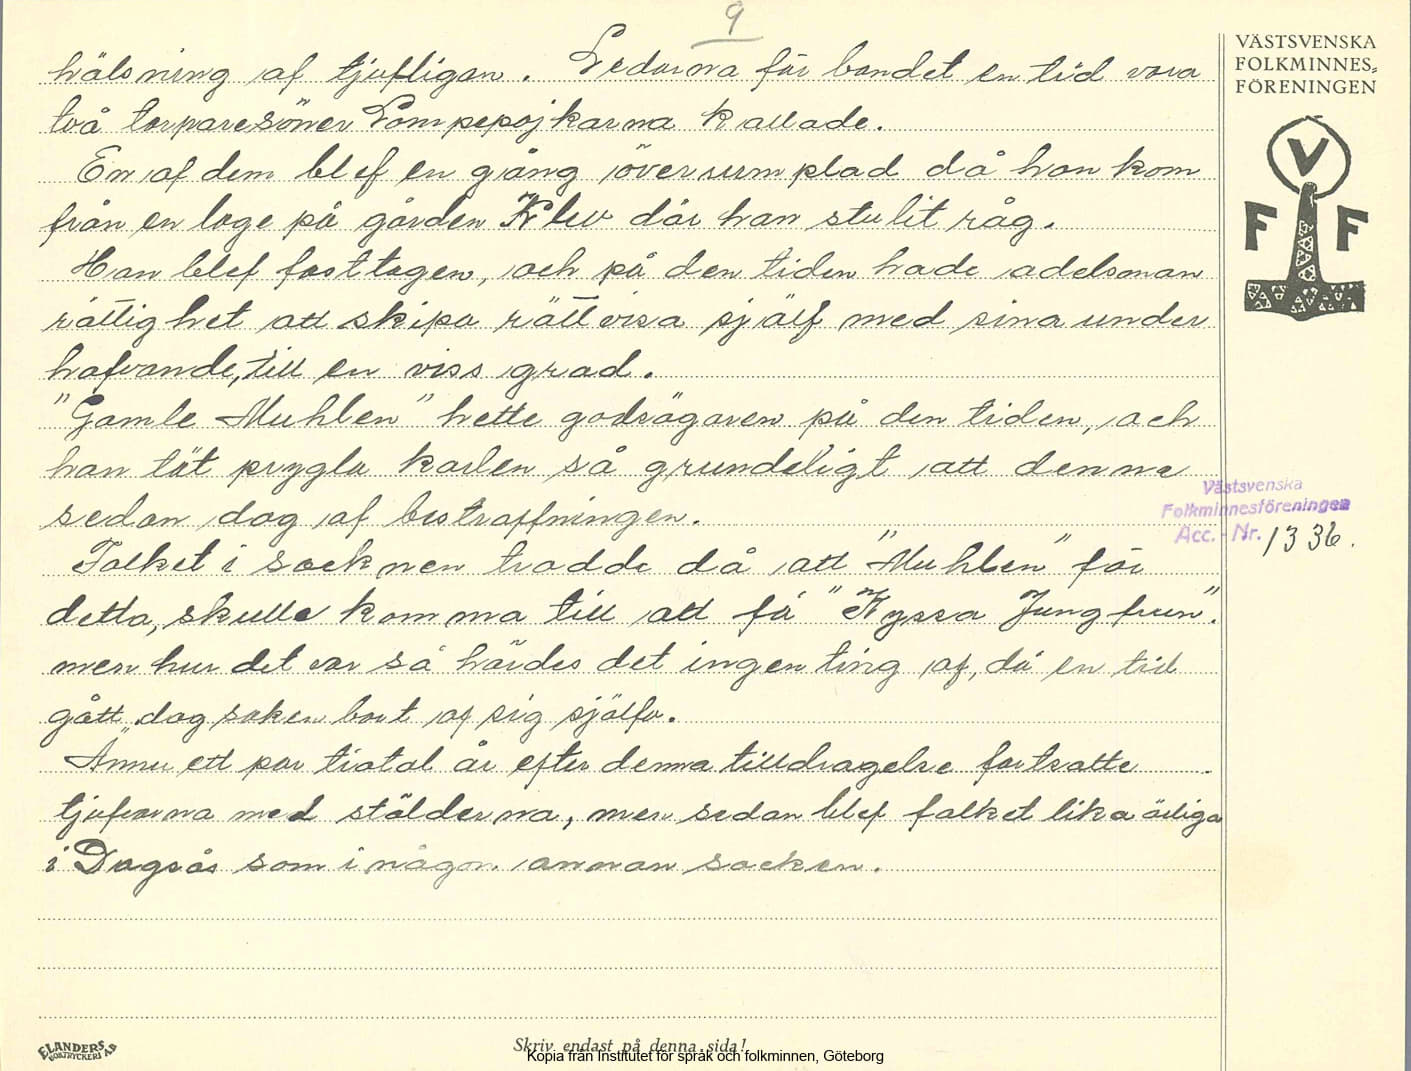 9
hälsning af tjufligan. Ledarna för bandet en tid vara
två torparesöner Lompepojkarna kallade.
En af dem blef en gång överrumplad då han kom
från en loge på gården Klev där han stulit råg.
Han blef fasttagen, och på den tiden hade adelsman
rättighet att skipa rättvisa själf med sina under
hafvande, till en viss grad.
"Gamle Muhlen" hette godsägaren på den tiden, och
han lät prygla karlen så grundeligt att denne
sedan dog af bestraffningen.
Folket i socknen trodde då att "Muhlen" för
detta, skulle komma till att få "Kyssa Jungfrun".
men hur det var så hördes det ingenting af, då en tid
gått dog saken bort af sig själfv.
Ännu ett par tiotal år efter denna tilldragelse fortsatte
tjufvarna med stölderna, men sedan blef folket lika ärliga
i Dagsås som i någon annan socken.
VÄSTSVENSKA
FOLKMINNES=
FÖRENINGEN
V
F F
Västsvenska
Folkminnesföreningen
Acc. - Nr. 1336.
ELANDERS
BOKTRYCKERI AB
Skriv endast på denna sida!
Kopia från Institutet för språk och folkminnen, Göteborg